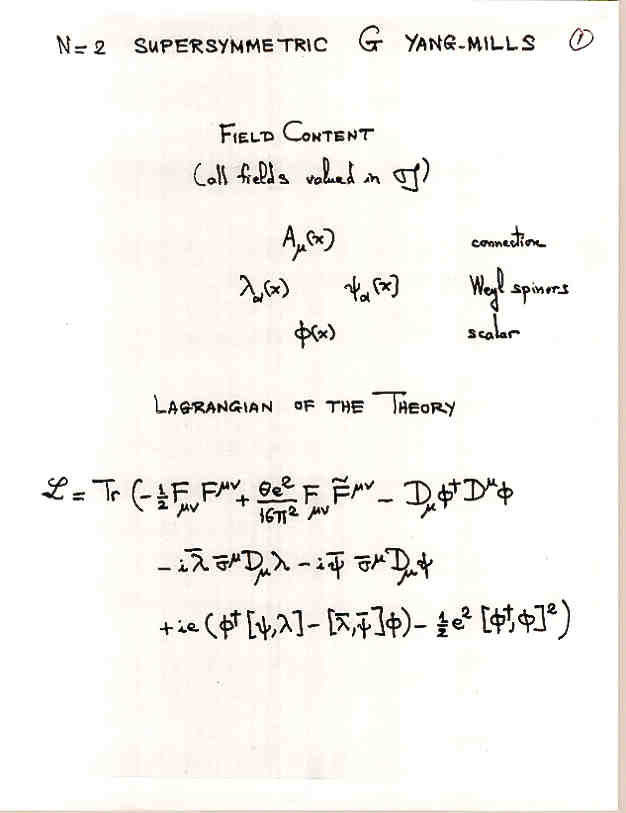 N=2 SUPERSYMMETRIC G YANG-MILLS ①
FIELD CONTENT
(all fields valued in 𝔤)
A_μ(x) connection
λ_α(x) ψ_α(x) Weyl spinors
ϕ(x) scalar
LAGRANGIAN OF THE THEORY
ℒ = Tr (-½ F_μν F^μν + θe²/16π² F_μν F̃^μν - D_μϕ†D^μϕ
- i λ̄ σ̄^μ D_μ λ - i ψ̄ σ̄^μ D_μ ψ
+ ie (ϕ† [ψ,λ] - [λ̄,ψ̄]ϕ) - ½e² [ϕ†,ϕ]²)